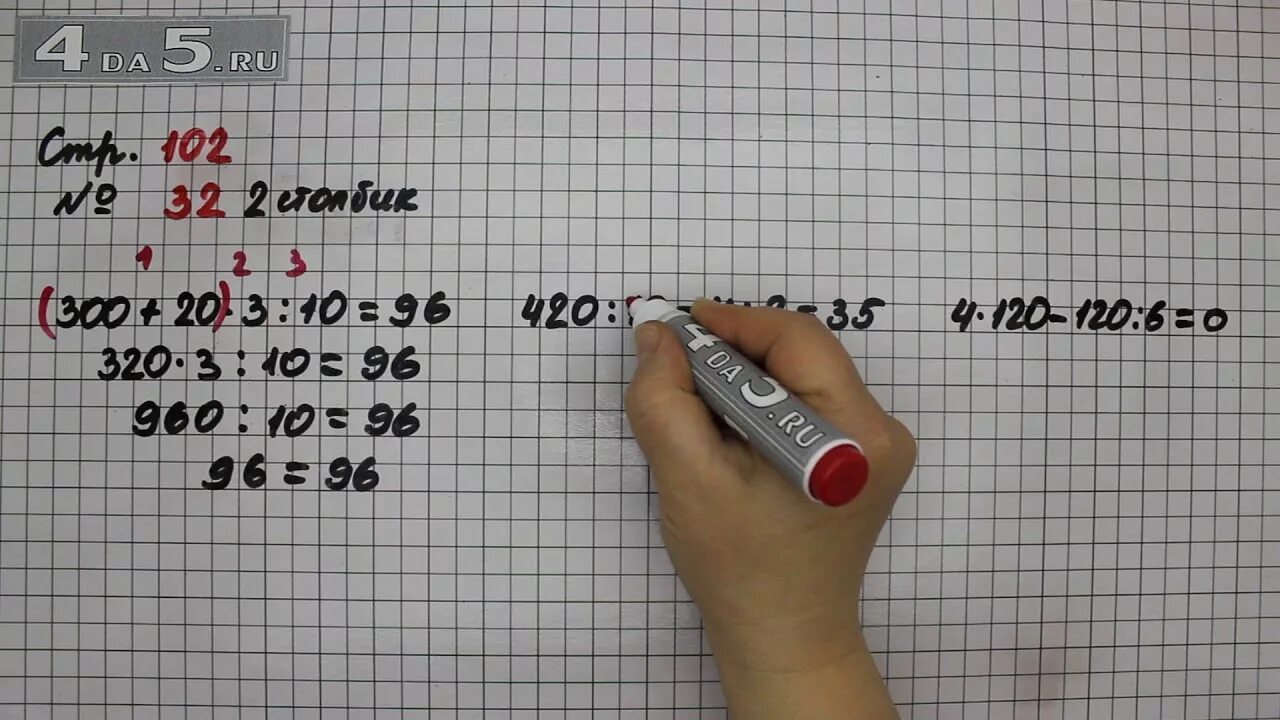 4DA5.RU
Стр. 102
№ 32 2 столбик
1 2 3
(300 + 20) · 3 : 10 = 96
320 · 3 : 10 = 96
960 : 10 = 96
96 = 96
420 : = 35
4 · 120 - 120 : 6 = 0
4DA5.RU